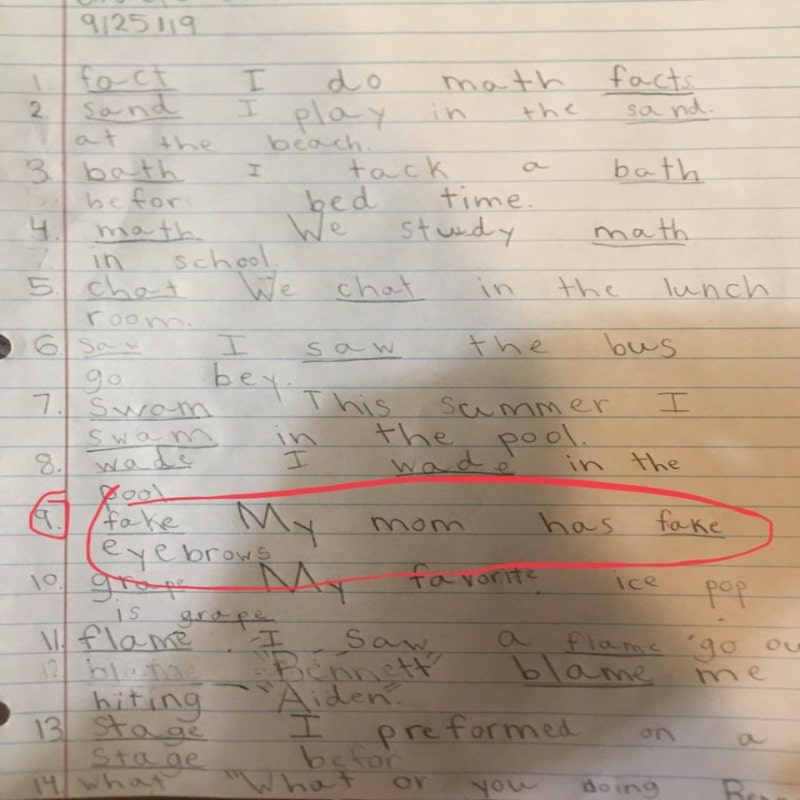 9/25/19
1 fact I do math facts
2 sand I play in the sand.
at the beach.
3. bath I tack a bath
befor bed time.
4. math We study math
in school
5. chat We chat in the lunch
room.
6. saw I saw the bus
go bey.
7. swam This summer I
swam in the pool.
8. wade I wade in the
pool
9. fake My mom has fake
eyebrows
10. grape My favorite ice pop
is grape
11. flame I saw a flame go ou
12 blame "Bennett" blame me
hiting "Aiden."
13 stage I preformed on a
stage befor
14 what "What or you doing